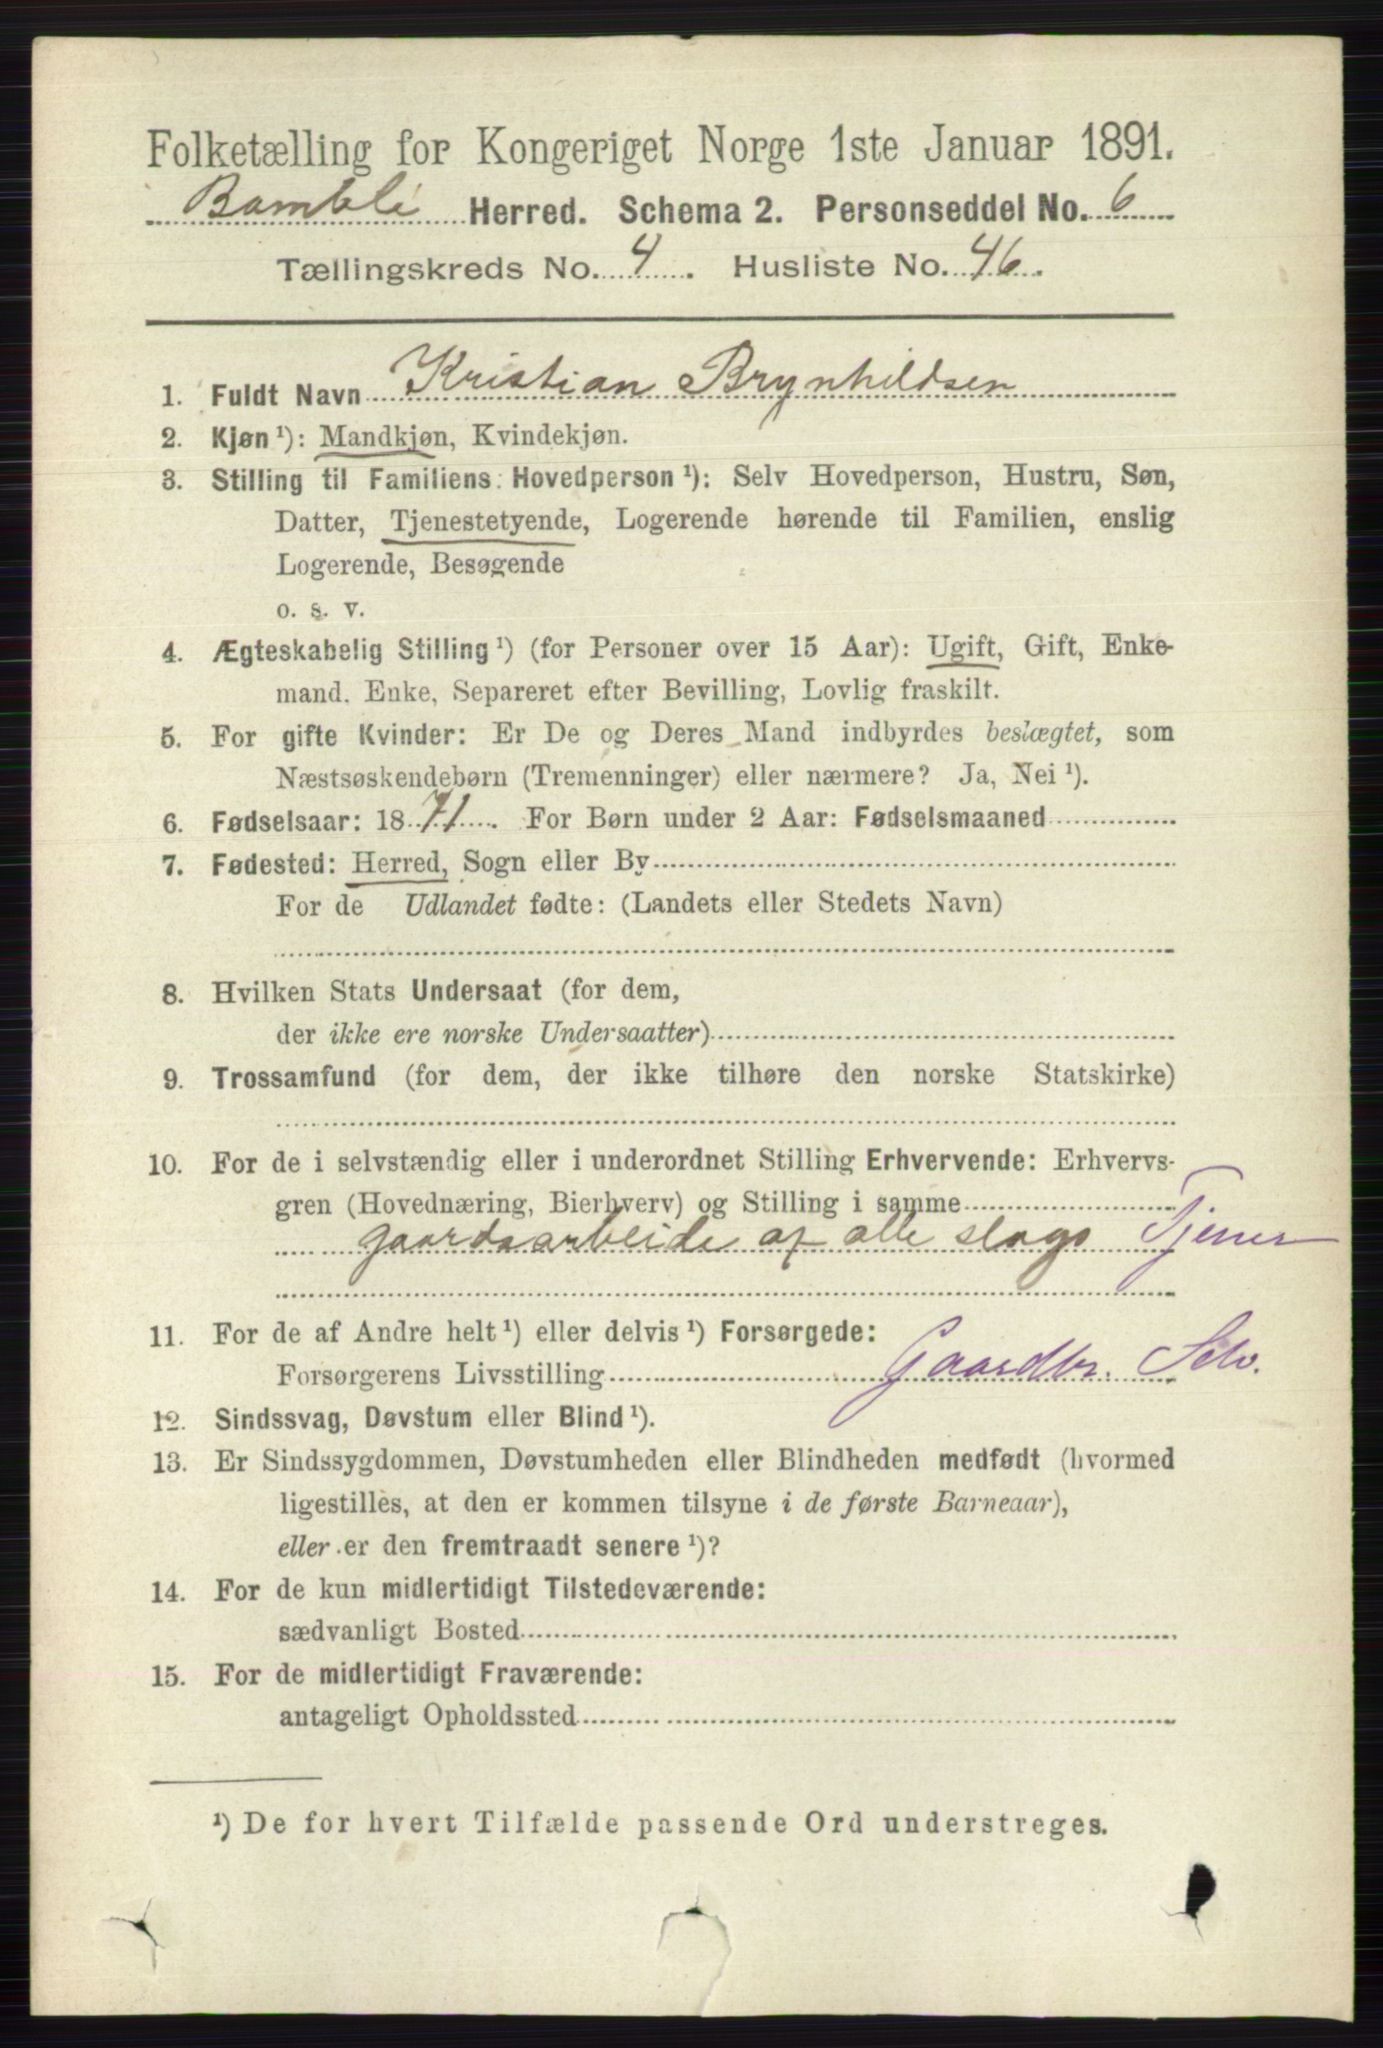 Folketælling for Kongeriget Norge 1ste Januar 1891.
Bamble Herred. Schema 2. Personseddel No. 6
Tællingskreds No. 4. Husliste No. 46.
1. Fuldt Navn Kristian Brynhildsen
2. Kjøn ¹): Mandkjøn, Kvindekjøn.
3. Stilling til Familiens Hovedperson ¹): Selv Hovedperson, Hustru, Søn,
Datter, Tjenestetyende, Logerende hørende til Familien, enslig
Logerende, Besøgende
o. s. v.
4. Ægteskabelig Stilling ¹) (for Personer over 15 Aar): Ugift, Gift, Enke-
mand. Enke, Separeret efter Bevilling, Lovlig fraskilt.
5. For gifte Kvinder: Er De og Deres Mand indbyrdes beslægtet, som
Næstsøskendebørn (Tremenninger) eller nærmere? Ja, Nei ¹).
6. Fødselsaar: 1871. For Børn under 2 Aar: Fødselsmaaned
7. Fødested: Herred, Sogn eller By
For de Udlandet fødte: (Landets eller Stedets Navn)
8. Hvilken Stats Undersaat (for dem,
der ikke ere norske Undersaatter)
9. Trossamfund (for dem, der ikke tilhøre den norske Statskirke)
10. For de i selvstændig eller i underordnet Stilling Erhvervende: Erhvervs-
gren (Hovednæring, Bierhverv) og Stilling i samme
gaardsarbeide af alle slags Tjener
11. For de af Andre helt ¹) eller delvis ¹) Forsørgede:
Forsørgerens Livsstilling Gaardbr. Selv.
12. Sindssvag, Døvstum eller Blind ¹).
13. Er Sindssygdommen, Døvstumheden eller Blindheden medfødt (hvormed
ligestilles, at den er kommen tilsyne i de første Barneaar),
eller er den fremtraadt senere ¹)?
14. For de kun midlertidigt Tilstedeværende:
sædvanligt Bosted
15. For de midlertidigt Fraværende:
antageligt Opholdssted
¹) De for hvert Tilfælde passende Ord understreges.